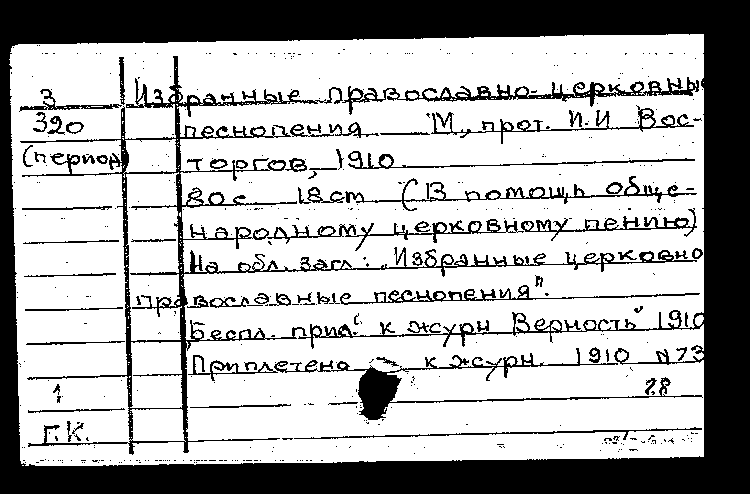 З Избранные православно-церковны
320 песнопения М., прот. И.И Вос-
(период) торгов, 1910.
80 с. 18 cm (В помощь обще-
народному церковному пению)
На обл. загл: „Избранные церковно
православные песнопения".
Беспл. прил. к журн „Верность" 1910
Приплетено к журн. 1910 N 73
1 28
Г.К.